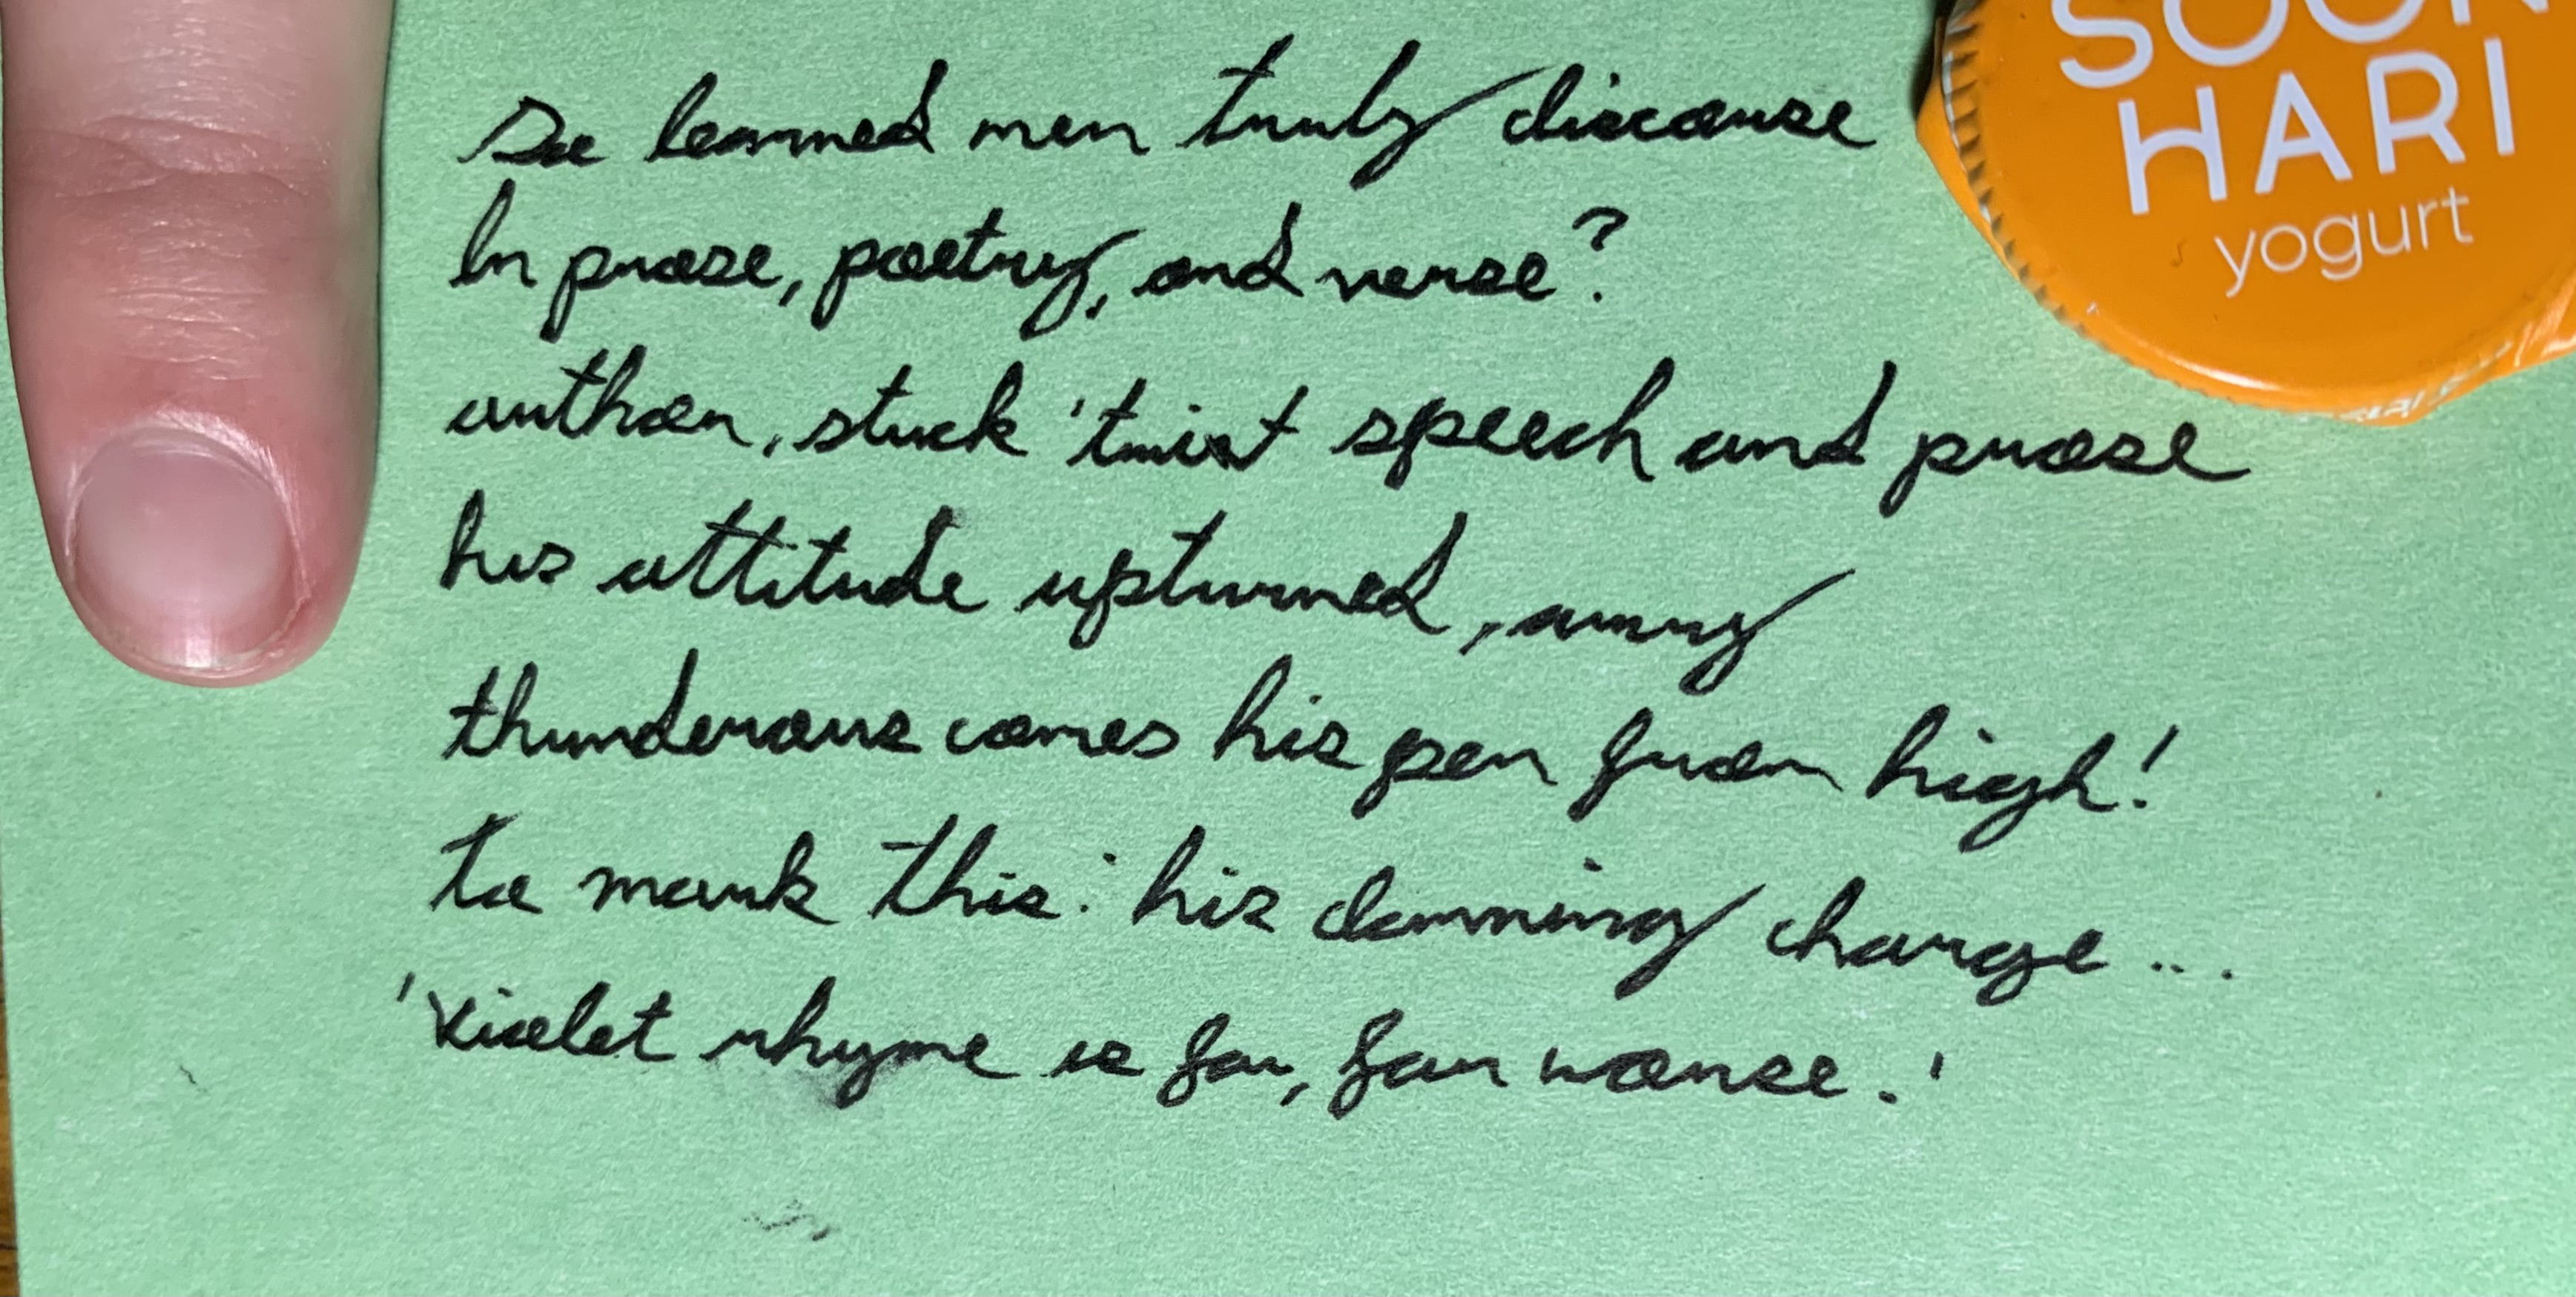 Do learned men truly discourse
In prose, poetry, and verse?
author, stuck 'twixt speech and prose
his attitude upturned, awry
thunderous comes his pen from high!
to mark this: his damning charge...
'Violet rhyme is far, far worse.'
SOON
HARI
yogurt